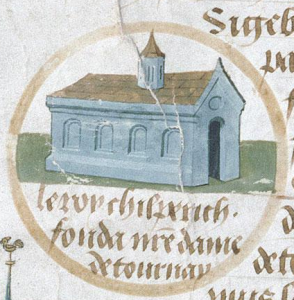 Sigeb
pa
le roy chilperich.
fonda nr̃e dame
de tournay